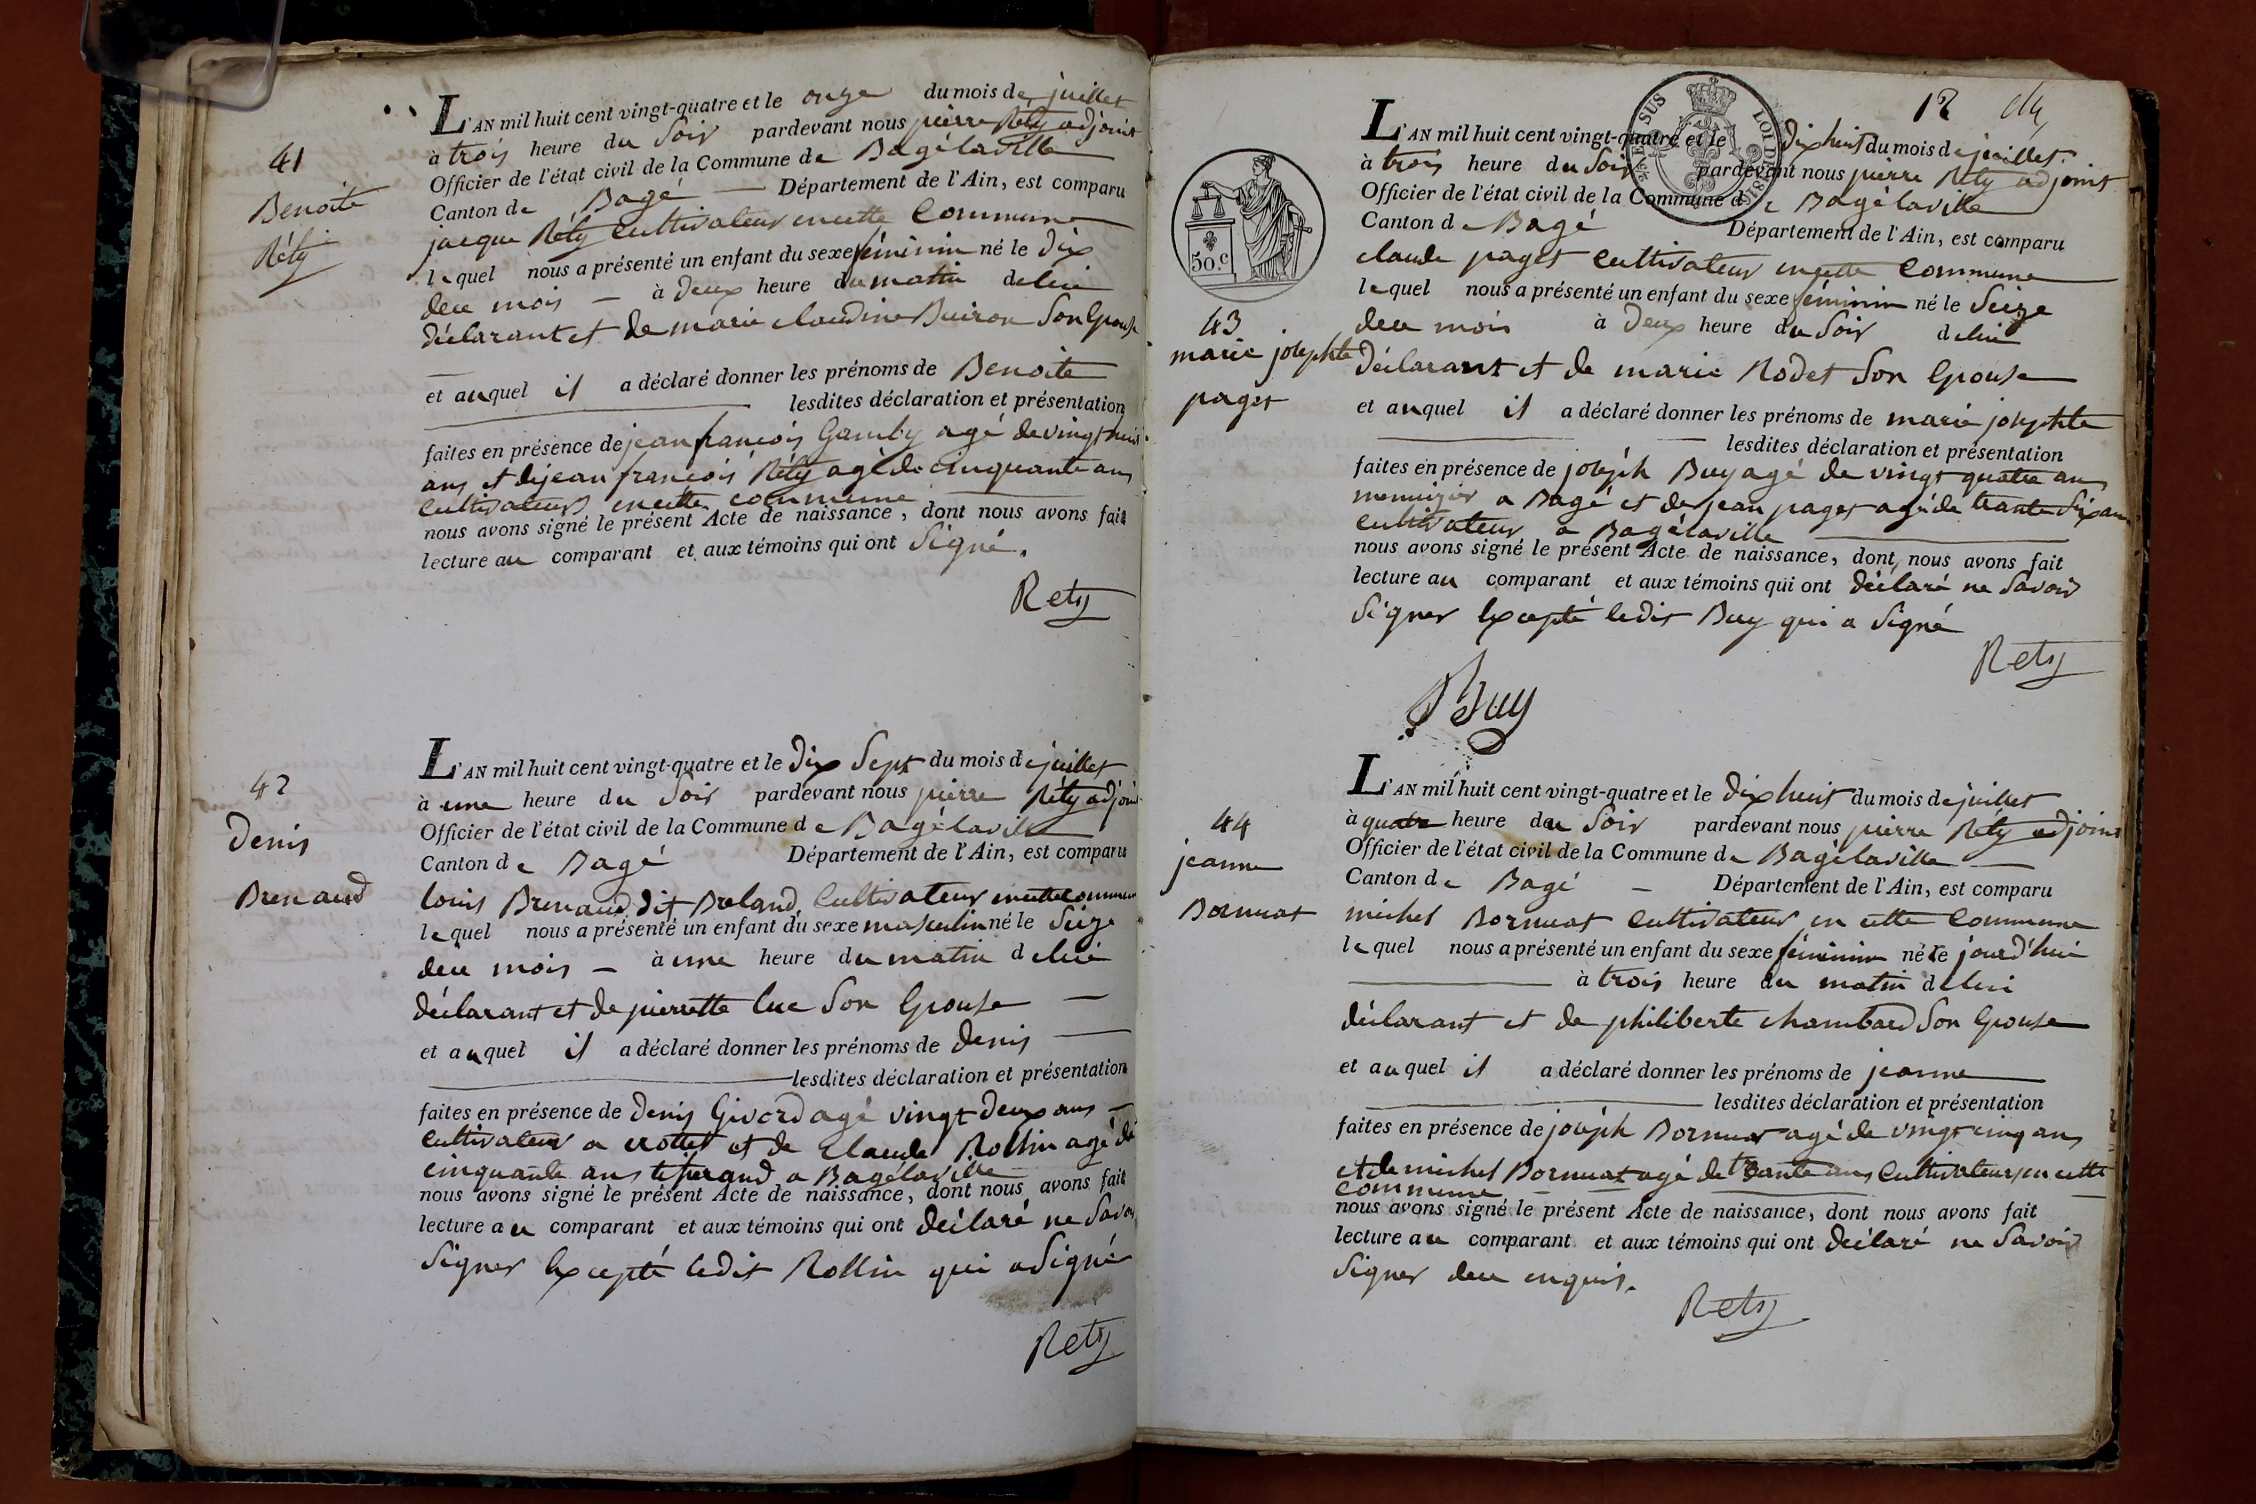 41
Benoite
Réty
L'AN mil huit cent vingt-quatre et le onze du mois de juillet
à trois heure du Soir pardevant nous pierre Réty adjoint
Officier de l'état civil de la Commune de Bagélaville
Canton de Bagé Département de l'Ain, est comparu
jacque Réty Cultivateur en cette Commune
lequel nous a présenté un enfant du sexe féminin né le dix
deu mois à deux heure du matin de lui
déclarant et de marie claudine Buiron Son Epouse
et auquel il a déclaré donner les prénoms de Benoite
lesdites déclaration et présentation
faites en présence de jean francois Gamby agé de vingt huit
ans et de jean francois Réty agé de cinquante ans
Cultivateurs en cette commune
nous avons signé le présent Acte de naissance, dont nous avons fait
lecture au comparant et aux témoins qui ont Signé.
Rety
42
Denis
Brenaud
L'AN mil huit cent vingt-quatre et le dix Sept du mois de juillet
à une heure du Soir pardevant nous pierre Réty adjoint
Officier de l'état civil de la Commune de Bagélaville
Canton de Bagé Département de l'Ain, est comparu
louis Brenaud dit Breland Cultivateur en cette commune
lequel nous a présenté un enfant du sexe masculin né le Seize
deu mois à une heure du matin de lui
déclarant et de pierrette luc Son Epouse
et auquel il a déclaré donner les prénoms de denis
lesdites déclaration et présentation
faites en présence de denis Givord agé vingt deux ans
Cultivateur a crottet et de Claude Rollin agé de
cinquante ans a Bagélaville
nous avons signé le présent Acte de naissance, dont nous avons fait
lecture au comparant et aux témoins qui ont déclaré ne Savoir
Signer Excepté ledit Rollin qui a Signé
Rety
12
VE SUS
LOI DE 1816
50.c
43
marie josephte
paget
L'AN mil huit cent vingt-quatre et le dix huit du mois de juillet
à trois heure du Soir pardevant nous pierre Réty adjoint
Officier de l'état civil de la Commune de Bagélaville
Canton de Bagé Département de l'Ain, est comparu
claude paget Cultivateur en cette Commune
lequel nous a présenté un enfant du sexe féminin né le Seize
deu mois à deux heure du Soir de lui
déclarant et de marie Rodet Son Epouse
et auquel il a déclaré donner les prénoms de marie josephte
lesdites déclaration et présentation
faites en présence de joséph Buy agé de vingt quatre ans
menuizier a Bagé et de jean paget agé de trante Six ans
Cultivateur a Bagélaville
nous avons signé le présent Acte de naissance, dont nous avons fait
lecture au comparant et aux témoins qui ont déclaré ne Savoir
Signer Excepté ledit Buy qui a Signé
Rety
Buy
44
jeanne
Bornuat
L'AN mil huit cent vingt-quatre et le dix huit du mois de juillet
à quatre heure deu Soir pardevant nous pierre Réty adjoint
Officier de l'état civil de la Commune de Bagélaville
Canton de Bagé Département de l'Ain, est comparu
michel Bornuat Cultivateur en cette Commune
lequel nous a présenté un enfant du sexe féminin né le jourd'hui
à trois heure du matin de lui
déclarant et de philiberte chambard Son Epouse
et auquel il a déclaré donner les prénoms de jeanne
lesdites déclaration et présentation
faites en présence de joséph Bornuat agé de vingt cinq ans
et de michel Bornuat agé de trante ans Cultivateurs en cette
commune
nous avons signé le présent Acte de naissance, dont nous avons fait
lecture au comparant et aux témoins qui ont déclaré ne Savoir
Signer deu enquis.
Rety